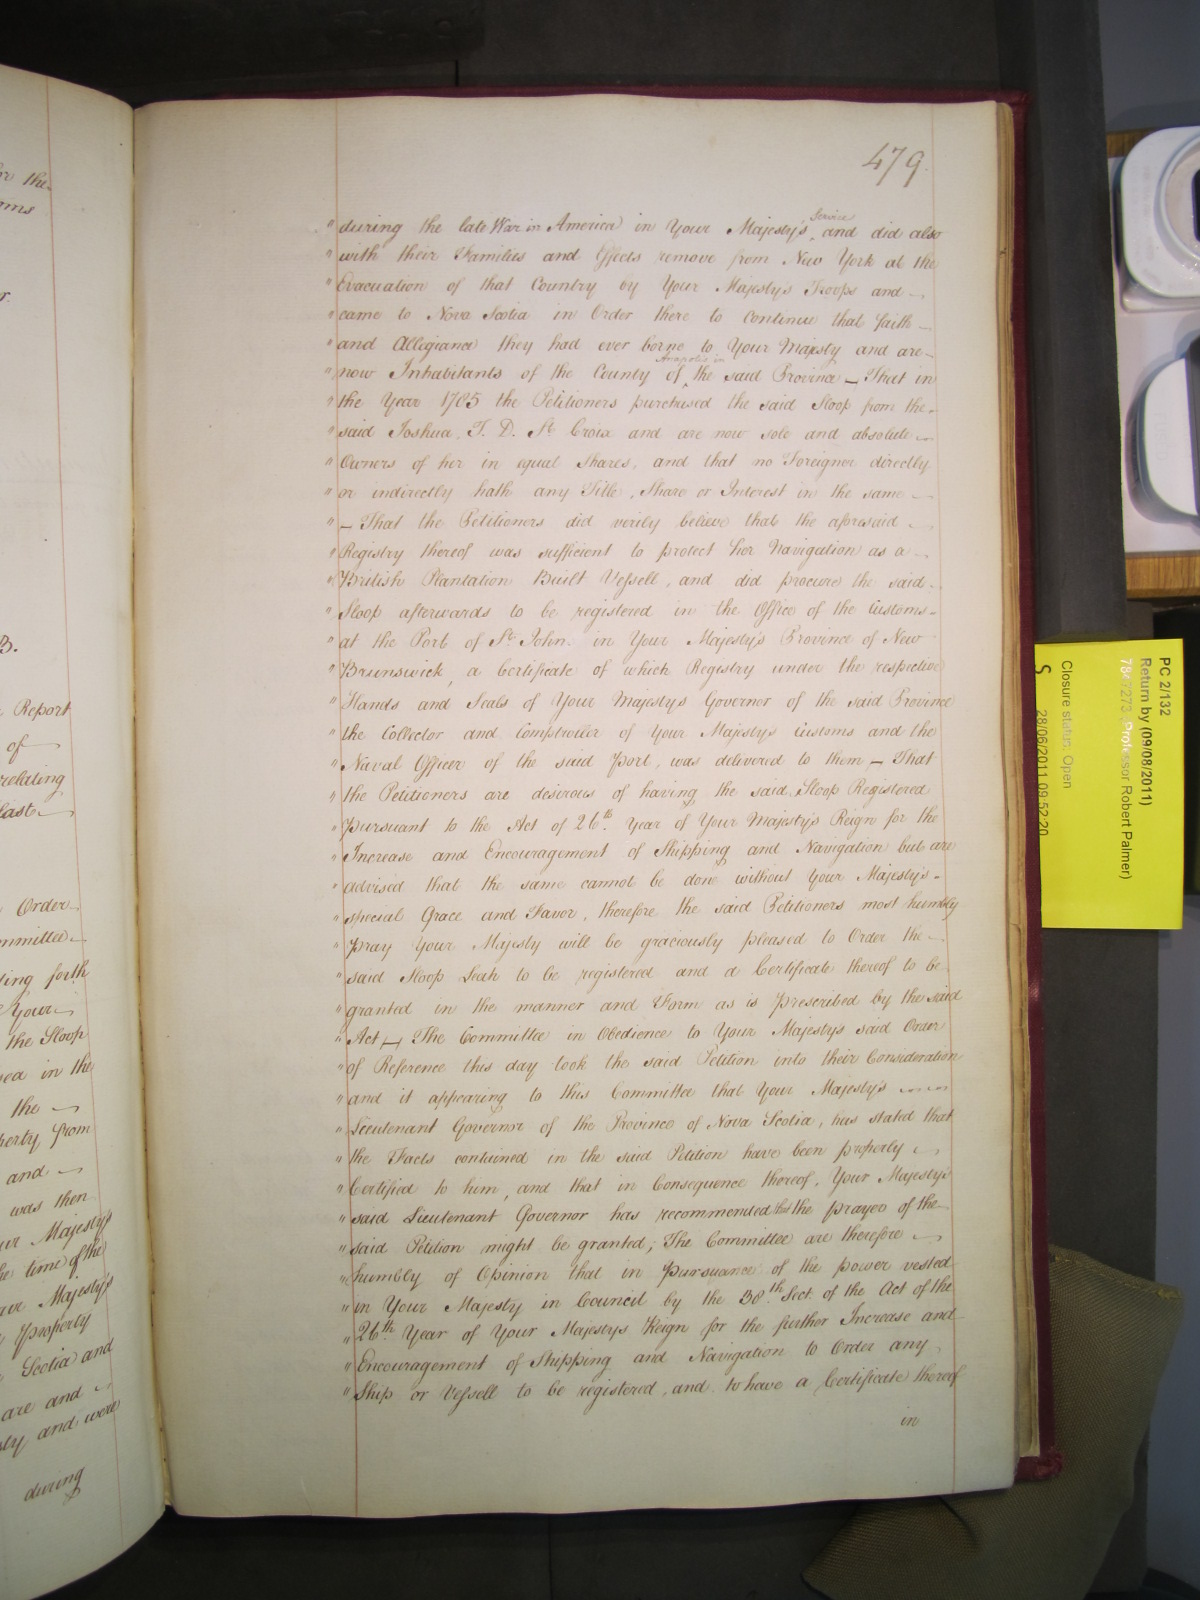 or the
oms
r.
B.
Report
of
relating
Last
Order
mmittee
ting forth
Your
the Sloop
sed in the
the
perty from
and
was then
ur Majesty's
he time of the
ave Majesty's
property
Scotia and
are and
sty and were
during
479.
" during the late War in America in Your Majesty's Service and did also
" with their Families and Effects remove from New York at the
" Evacuation of that Country by Your Majesty's Troops and
" came to Nova Scotia in Order there to continue that faith
" and Allegiance they had ever borne to Your Majesty and are
" now Inhabitants of the County of Anapolis in the said Province — That in
" the Year 1785 the Petitioners purchased the said Sloop from the
" said Joshua, T. D. St. Croix and are now sole and absolute
" Owners of her in equal Shares, and that no Foreigner directly
" or indirectly hath any Title, Share or Interest in the same
" — That the Petitioners did verily believe that the aforesaid
" Registry thereof was sufficient to protect her Navigation as a
" British Plantation Built Vessell, and did procure the said
" Sloop afterwards to be registered in the Office of the Customs
" at the Port of St. John in Your Majesty's Province of New
" Brunswick, a Certificate of which Registry under the respective
" Hands and Seals of Your Majestys Governor of the said Province
" the Collector and Comptroller of Your Majesty's Customs and the
" Naval Officer of the said Port, was delivered to them — That
" the Petitioners are desirous of having the said Sloop Registered
" pursuant to the Act of 26th. Year of Your Majesty's Reign for the
" Increase and Encouragement of Shipping and Navigation but are
" advised that the same cannot be done without Your Majesty's
" special Grace and Favor, therefore the said Petitioners most humbly
" pray Your Majesty will be graciously pleased to Order the
" said Sloop Leah to be registered and a Certificate thereof to be
" granted in the manner and Form as is prescribed by the said
" Act — The Committee in Obedience to Your Majesty's said Order
" of Reference this day took the said Petition into their Consideration
" and it appearing to this Committee that Your Majesty's
" Lieutenant Governor of the Province of Nova Scotia, has stated that
" the Facts contained in the said Petition have been properly
" Certified to him, and that in Consequence thereof, Your Majesty's
" said Lieutenant Governor has recommended that the prayer of the
" said Petition might be granted; The Committee are therefore
" humbly of Opinion that in pursuance of the power vested
" in Your Majesty in Council by the 38th. Sect. of the Act of the
" 26th. Year of Your Majestys Reign for the further Increase and
" Encouragement of Shipping and Navigation to Order any
" Ship or Vessell to be registered, and to have a Certificate thereof
in
PC 2/132
Return by (09/08/2011)
Professor Robert Palmer)
Closure status: Open
S 28/06/2011 09:52:20